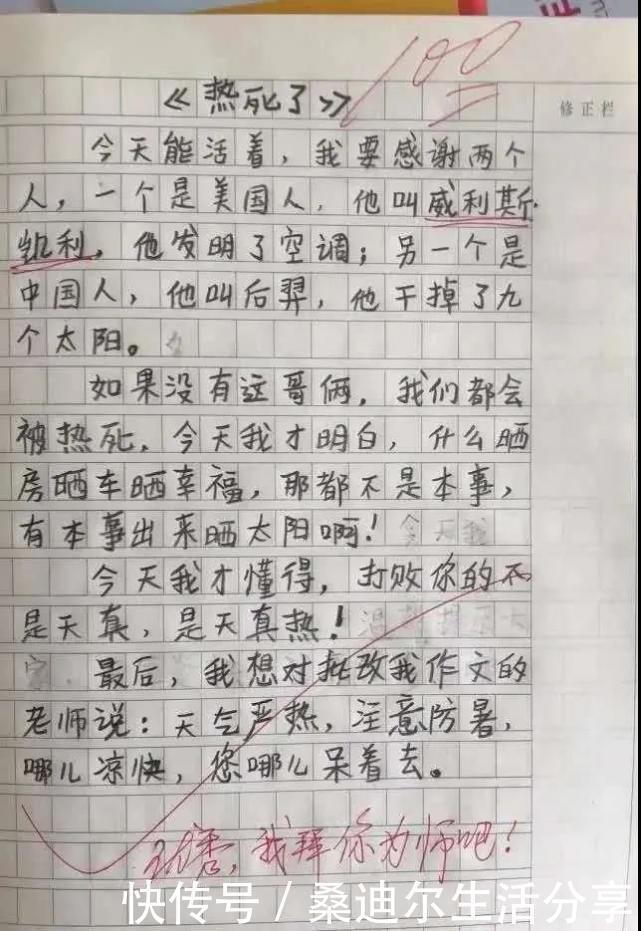 100
《热死了》
修正栏
今天能活着，我要感谢两个
人，一个是美国人，他叫威利斯·
凯利，他发明了空调；另一个是
中国人，他叫后羿，他干掉了九
个太阳。
如果没有这哥俩，我们都会
被热死，今天我才明白，什么晒
房晒车晒幸福，那都不是本事，
有本事出来晒太阳啊！今天我
今天我才懂得，打败你的不
是天真，是天真热！
最后，我想对批改我作文的
老师说：天气严热，注意防暑，
哪儿凉快，您哪儿呆着去。
优秀，我拜你为师吧！
快传号 / 桑迪尔生活分享